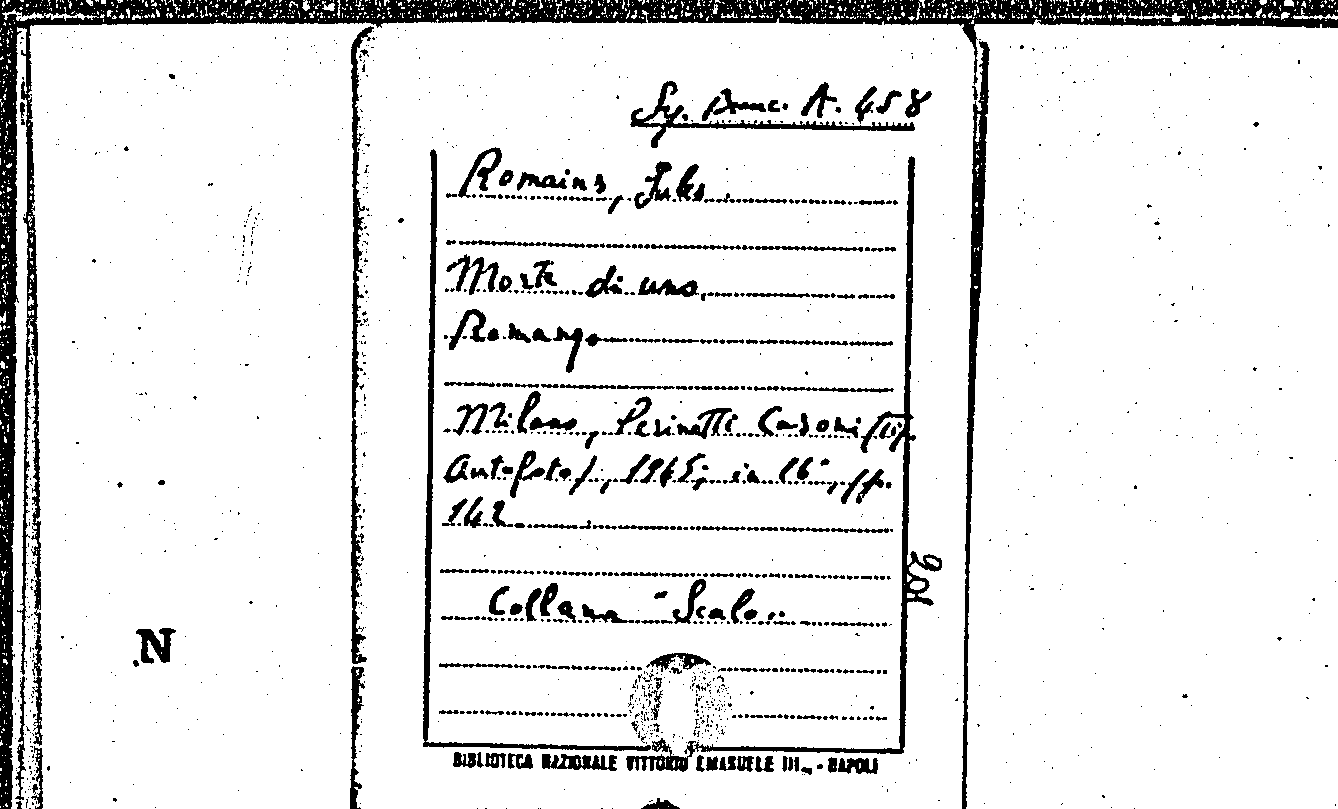 Sg. Annc. A. 458
Romains, Jules
Morte di uno.
Romanzo
Milano, Perinetti Casoni (Tip.
Autofoto), 1945; in 16°, pp.
142
201
Collana "Scalo"
N
BIBLIOTECA NAZIONALE VITTORIO EMANUELE III - NAPOLI